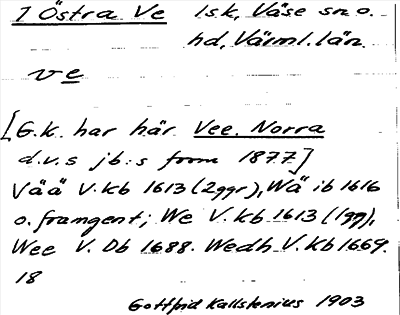 1 Östra Ve lsk, Väse sn o.
hd, Värml. län.
ve
[G.k. har här Vee. Norra
d.v.s jb:s from 1877.]
Vää V.kb 1613 (2ggr), Wä ib 1616
o. framgent; We V.kb 1613 (1gg),
Wee V. Db 1688. Wedh V.kb 1669.
18
Gottfrid Kallstenius 1903